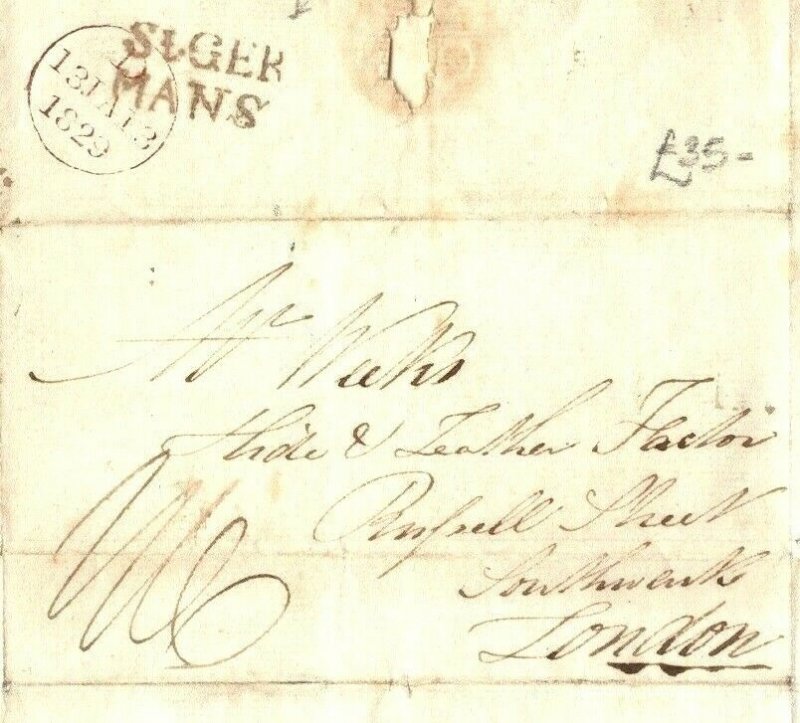 St GER
MANS
D
13 JA 13
1829
£35-
Mr Weeks
Hide & Leather Factor
Russell Street
Southwark
London